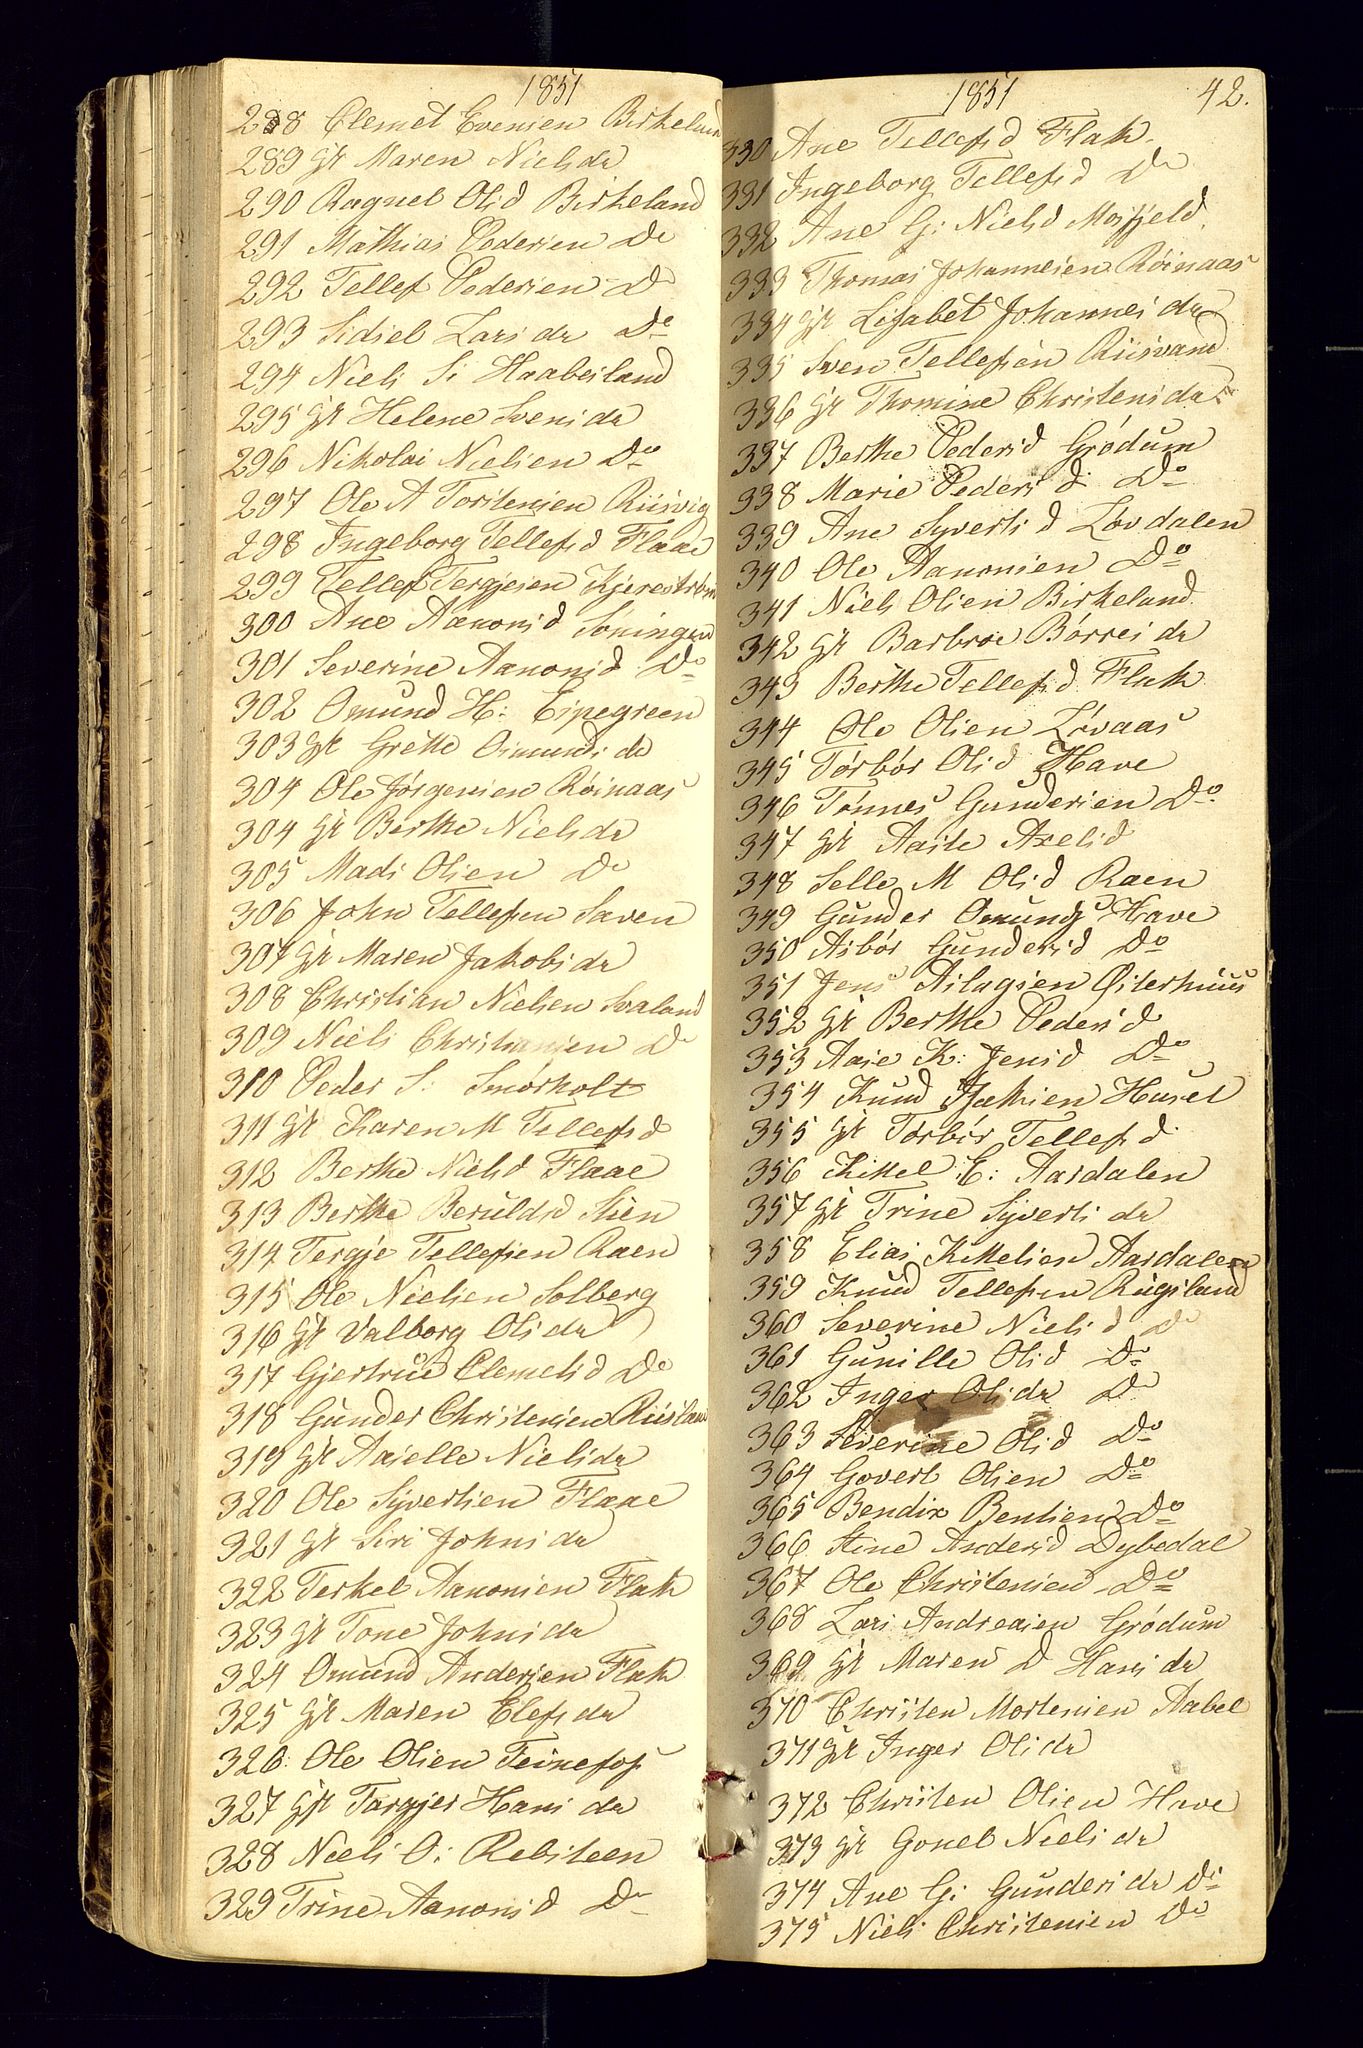 1851
288 Clemet Evensen Birkeland
289 Gt Maren Nielsdr
290 Raquel Olsd Birkeland
291 Mathias Pedersen Do
292 Tellef Pedersen Do
293 Sidsel Larsdr Do
294 Niels Si Haabesland
295 Gt Helene Svensdr
296 Nikolai Nielsen Do
297 Ole A Torstensen Riisvig
298 Ingeborg Tellefsd Flaae
299 Tellef Tergjesen Kjerestrøm
300 Ane Aanonsd Soningen
301 Severine Aanonsd Do
302 Omund H: Eipegreen
303 Gt Grethe Osmundsdr
304 Ole Jørgensen Röinaas
304 Gt Berthe Nielsdr
305 Mads Olsen Do
306 John Tellefsen Saven
307 Gt Maren Jakobsdr
308 Christian Nielsen Svaland
309 Niels Christiansen Do
310 Peder S: Smørholt
311 Gt Karen M Tellefsd
312 Berthe Nielsd Flaae
313 Berthe Beruldsd Stien
314 Tergje Tellefsen Raen
315 Ole Nielsen Solberg
316 Gt Valborg Olsdr
317 Gjertrud Clemetsd Do
318 Gunder Christensen Riisland
319 Gt Asielle Nielsdr
320 Ole Syvertsen Flaae
321 Gt Siri Johnsdr
322 Terkel Aanonsen Flak
323 Gt Tone Johnsdr
324 Omund Andersen Flak
325 Gt Maren Elefsdr
326 Ole Olsen Teinefos
327 Gt Targjer Hansdr
328 Niels O: Rebsteen
329 Trine Aanonsd Do
1851 42.
330 Ane Tellefsd Flak
331 Ingeborg Tellefsd Do
332 Ane G: Nielsd Mosfjeld
333 Thomas Johannesen Röinaas
334 Gt Lisabet Johannesdr
335 Sven Tellefsen Riisvand
336 Gt Thomine Christensdr
337 Berthe Pedersd Grödum
338 Marie Pedersd Do
339 Ane Syvertsd Lövdalen
340 Ole Aanonsen Do
341 Niels Olsen Birkeland
342 Gt Barbroe Börresdr
343 Berthe Tellefsd Flak
344 Ole Olsen Lövaas
345 Törbör Olsd Have
346 Tönnes Gundersen Do
347 Gt Aaste Axelsd
348 Selle M Olsd Raen
349 Gunder Omunds Have
350 Asbör Gundersd Do
351 Jens Aslagsen Østerhuus
352 Gt Berthe Pedersd
353 Aase K: Jensd Do
354 Knud Jsaksen Husel
355 Gt Torbör Tellefsd
356 Kittel E: Aasdalen
357 Gt Trine Syvertsdr
358 Elias Kittelsen Aasdalen
359 Knud Tellefsen Rugsland
360 Severine Nielsd Do
361 Gunille Olsd Do
362 Inger Olsdr Do
363 Severine Olsd Do
364 Govert Olsen Do
365 Bendix Bentsen Do
366 Stine Andersd Dybedal
367 Ole Christensen Do
368 Lars Andreasen Grödum
369 Gt Maren D Hansdr
370 Christen Mortensen Aabel
371 Gt Inger Olsdr
372 Christen Olsen Have
373 Gt Gonel Nielsdr
374 Ane G: Gundersdr Do
375 Niels Christensen Do